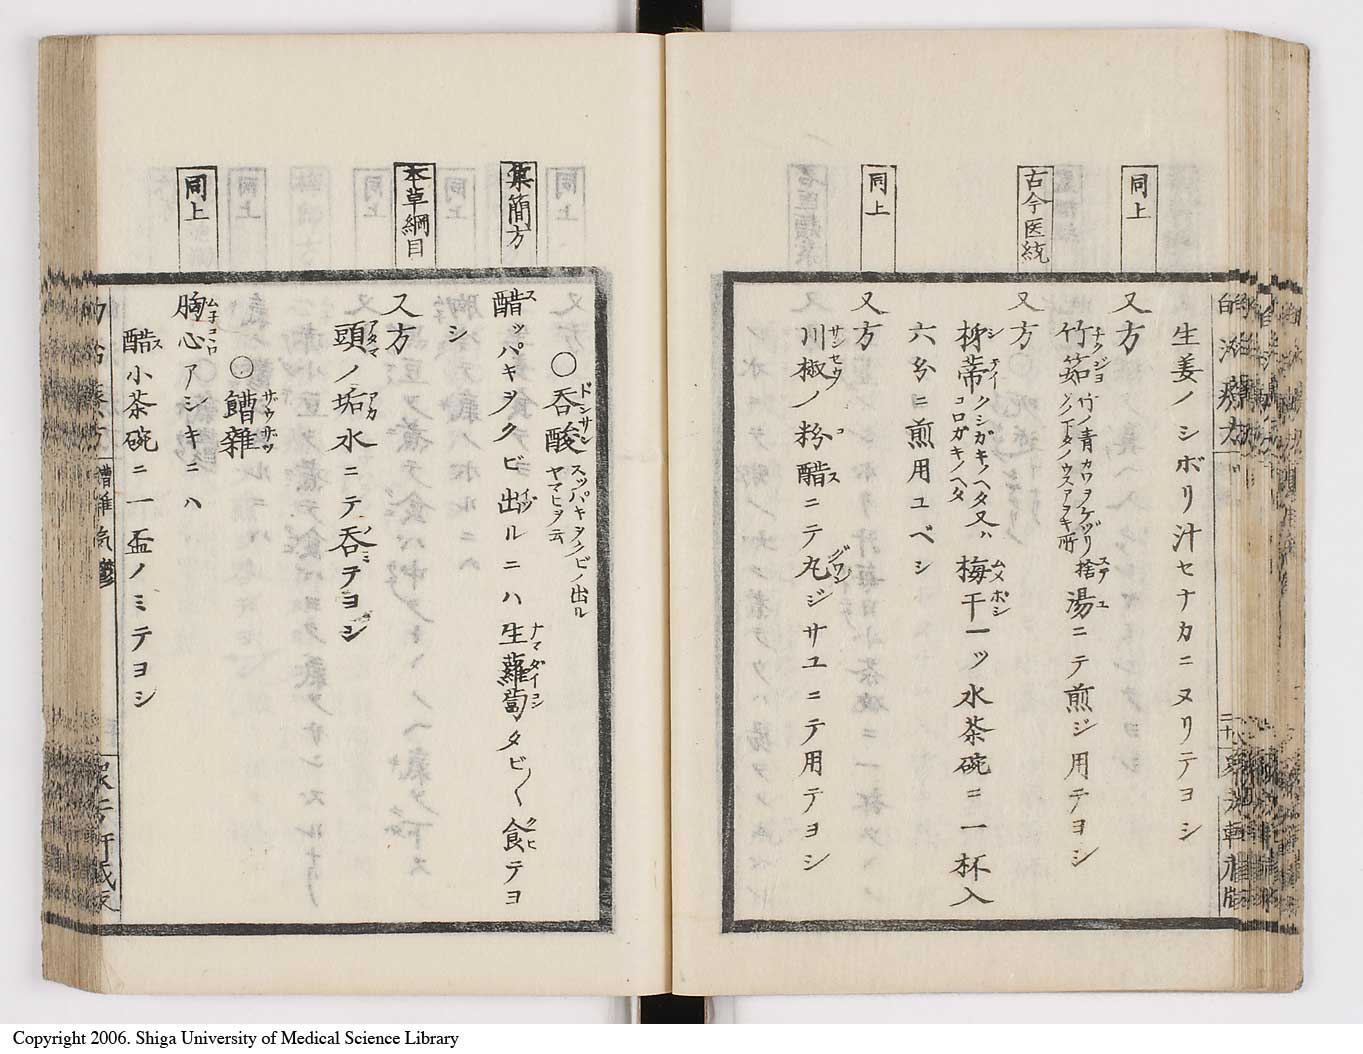 生姜ノシボリ汁セナカニヌリテヨシ
同上
又方
竹茹チクジョ竹ノ青カワヲケヅリ捨ステ湯ユニテ煎ジ用テヨシ
古今医統
又方
柹蒂シテイクシガキノヘタコロガキノヘタ又ハ梅干ムメボシ一ッ水茶碗ニ一杯入
六分ニ煎用ユベシ
同上
又方
川椒サンセウノ粉コ醋スニテ丸グワンジサユニテ用テヨシ
○呑酸ドンサンスッパキヲクビノ出ルヤマヒヲ云
集簡方
醋スッパキヲクビ出イヅルニハ生蘿蔔ナマダイコンタビ〱食クヒテヨ
シ
本草綱目
又方
頭アタマノ垢アカ水ニテ呑ノミテヨシ
○嘈雜サウザツ
同上
胸ムナ心コヽロアシキニハ
醋ス小茶碗ニ一盃ノミテヨシ
嘈雜 気鬱
Copyright 2006. Shiga University of Medical Science Library